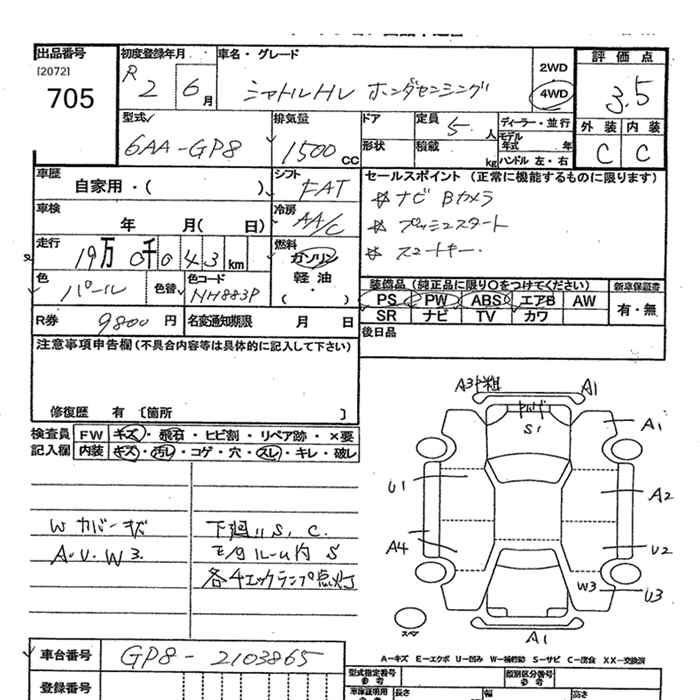 出品番号 初度登録年月 車名・グレード 評価点
[2072] 705 R2 6月 シャトルHV ホンダセンシング 2WD 4WD 3.5
外装 内装
C C
型式 排気量 ドア 定員 5人 ディーラー・並行
6AA-GP8 1500CC 形状 積載 kg モデル年式 年
ハンドル 左・右
車歴 自家用・( ) シフト FAT セールスポイント(正常に機能するものに限ります)
ナビ Bカメラ
プッシュスタート
スマートキー
車検 年 月( 日) 冷房 AA/C
走行 19万0千043km 燃料 ガソリン 軽油・( )
色 パール 色替 色コード NH883P
装備品(純正品に限り○をつけてください) 新車保証書
PS PW ABS エアB AW 有・無
SR ナビ TV カワ
R券 9800円 名変通知期限 月 日 後日品
注意事項申告欄(不具合内容等は具体的に記入して下さい)
修復歴 有 〔箇所 〕
検査員記入欄 FW キズ・飛石・ヒビ割・リペア跡・×要
内装 キズ・汚れ・コゲ・穴・スレ・キレ・破レ
Wカバーキズ 下廻りS、C.
A・U・W3. モタルーム内 S
各4エックランプ点灯
A3 A1
S1 A1
U1 A2
A4 U2
W3 U3
スペア A1
A-キズ E-エクボ U-凹み W-補修跡 S-サビ C-腐食 XX-交換済
車台番号 GP8-2103865 型式指定番号 参考 類別区分番号 参考
登録番号 車検証明用 参考 長さ 幅 高さ